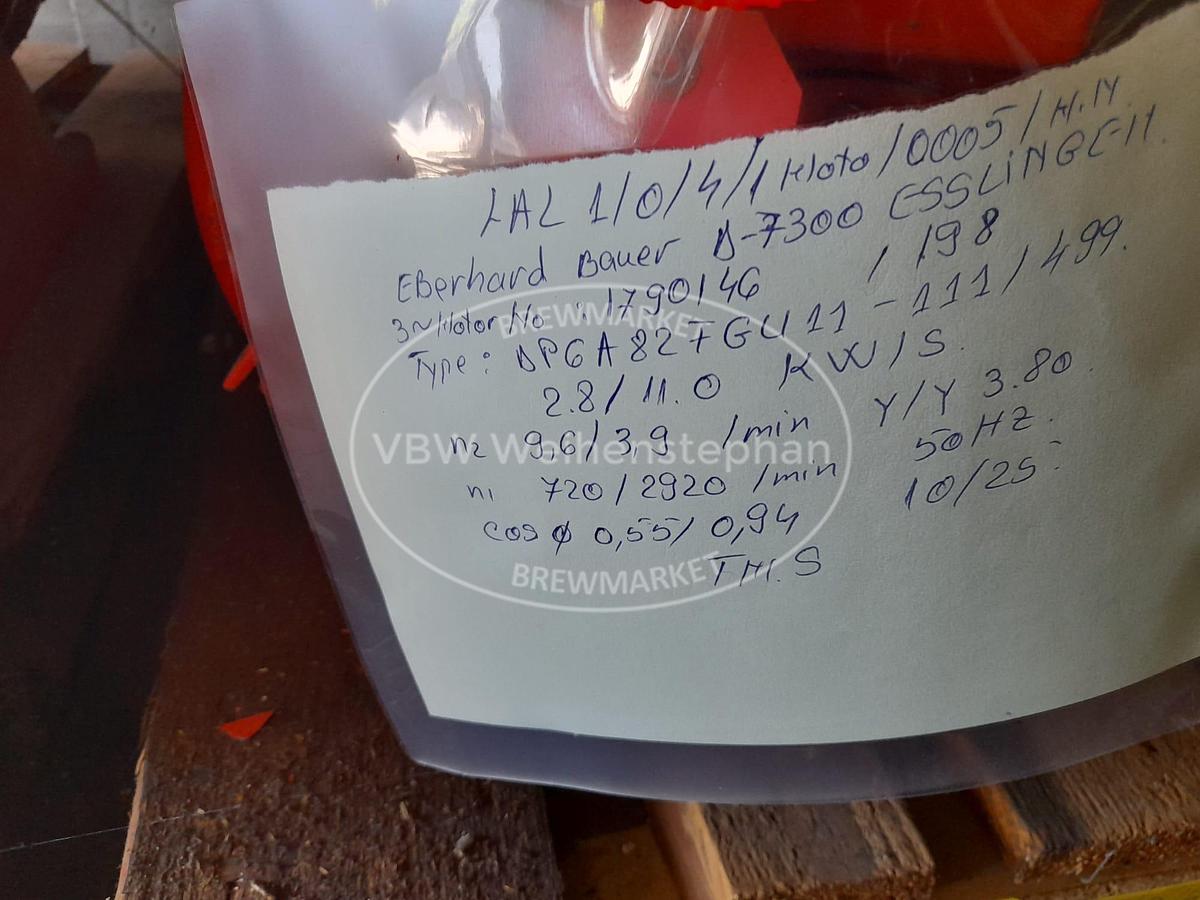 LAL 1/0/4/1 Moto/0005/H.M.
Eberhard Bauer D-7300 ESSLiNGEN.
3~Motor No : 1790146 / 198
Type : DPGA82TGU11-111/499.
2.8/11.0 KW/S.
n2 9,6/3,9 /min Y/Y 3.80
n1 720/2920 /min 50HZ.
cos φ 0,55/0,94 10/25
TH.S
BREWMARKET
VBW Weihenstephan
BREWMARKET